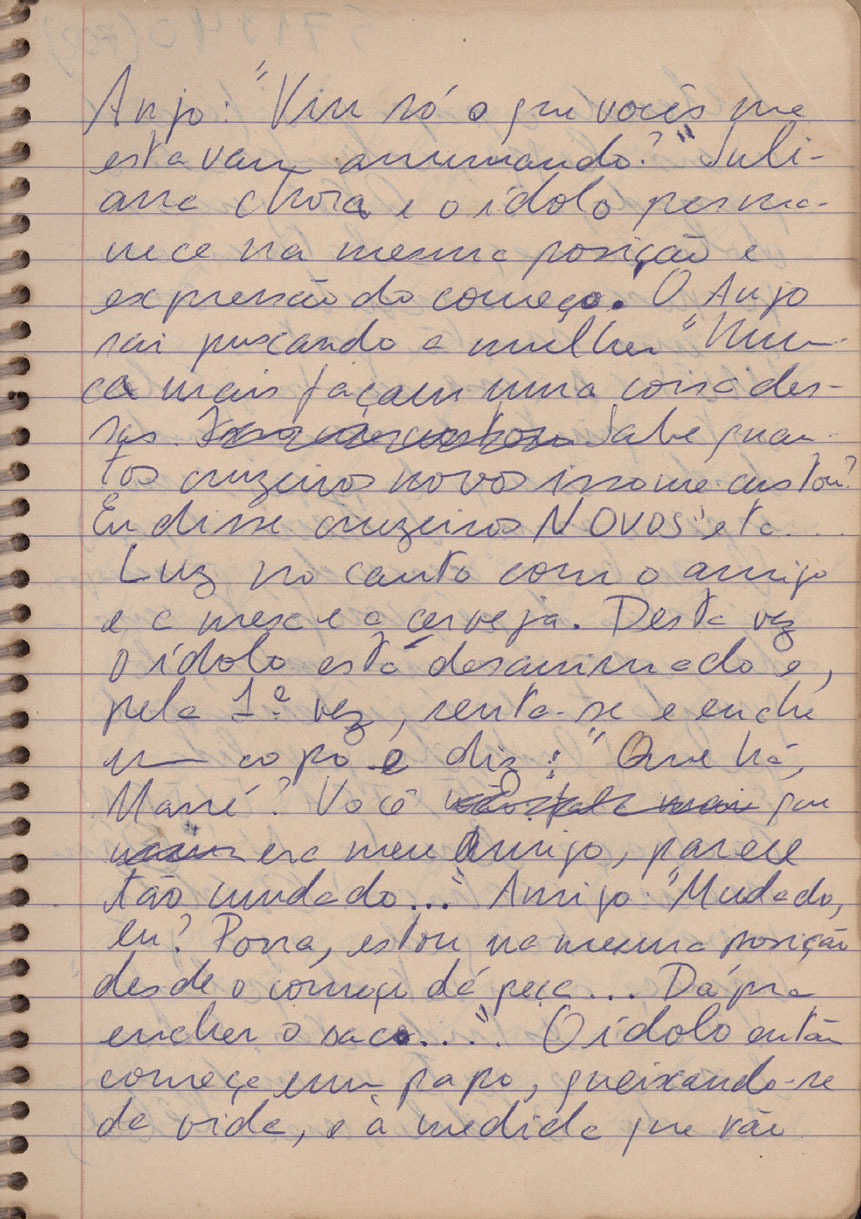 Anjo: "Viu só o que vocês me
estavam arrumando?" Juli-
ana chora e o ídolo perma-
nece na mesma posição e
expressão do começo. O Anjo
sai puxando a mulher "Nun-
ca mais façam uma coisa des-
sas Sabe quan-
tos cruzeiros novos isso me custou?
Eu disse cruzeiros NOVOS" etc....
Luz no canto com o amigo
e a mesa e a cerveja. Desta vez
o ídolo está desanimado e,
pela 1ª vez, senta-se e enche
um copo e diz: "Que há,
Mané? Você que
era meu amigo, parece
tão mudado..." Amigo: "Mudado,
eu? Porra, estou na mesma posição
desde o começo da peça... Dá pra
encher o saco....". O ídolo então
começa um papo, queixando-se
da vida, e à medida que vão